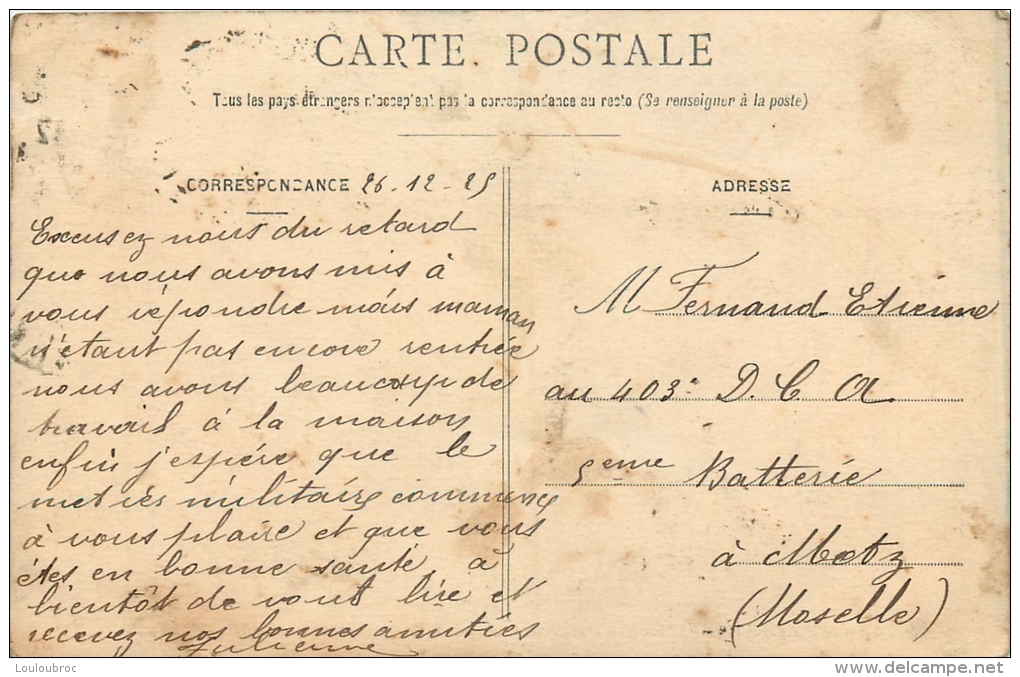 CARTE POSTALE
Tous les pays étrangers n'acceptent pas la correspondance au recto (Se renseigner à la poste)
CORRESPONDANCE 26-12-25
Excusez nous du retard
que nous avons mis à
vous répondre mais maman
n'étant pas encore rentrée
nous avons beaucoup de
travail à la maison
enfin j'espère que le
metiés militaire commence
à vous plaire et que vous
étes en bonne santé à
bientôt de vous lire et
recevez nos bonnes amitiés
Julienne
ADRESSE
M Fernand Etienne
au 403e D. C. A.
5eme Batterie
à Metz
(Moselle)
Louloubroc
www.delcampe.net